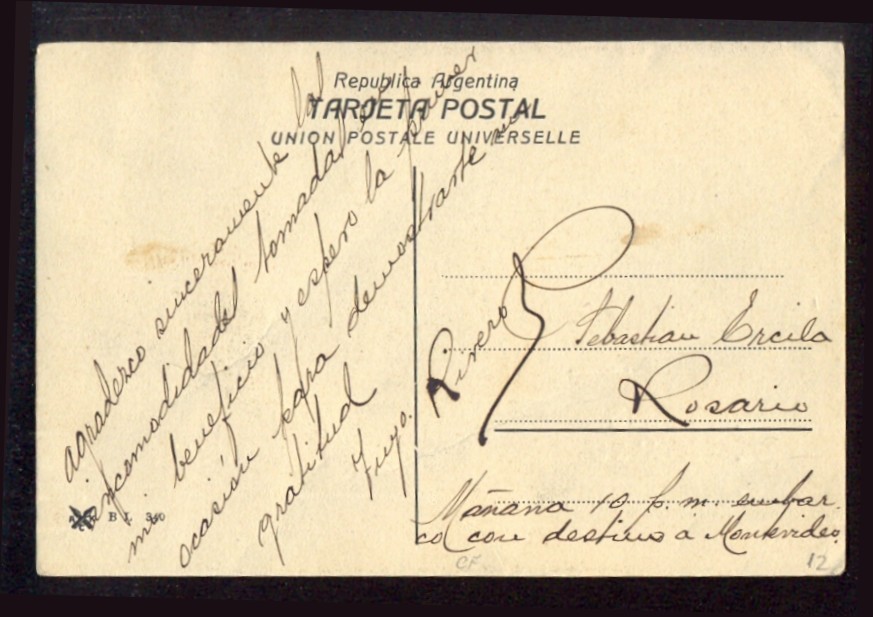 Republica Argentina
TARJETA POSTAL
UNION POSTALE UNIVERSELLE
agradezco sinceramente las
incomodidades tomadas en
mi beneficio y espero la primer
ocasión para demostrarte mi
gratitud
Tuyo.
Rivero
Sebastian Ercila
Rosario
Mañana 10 p. m. embar.
co con destino a Montevideo.
CF.
12